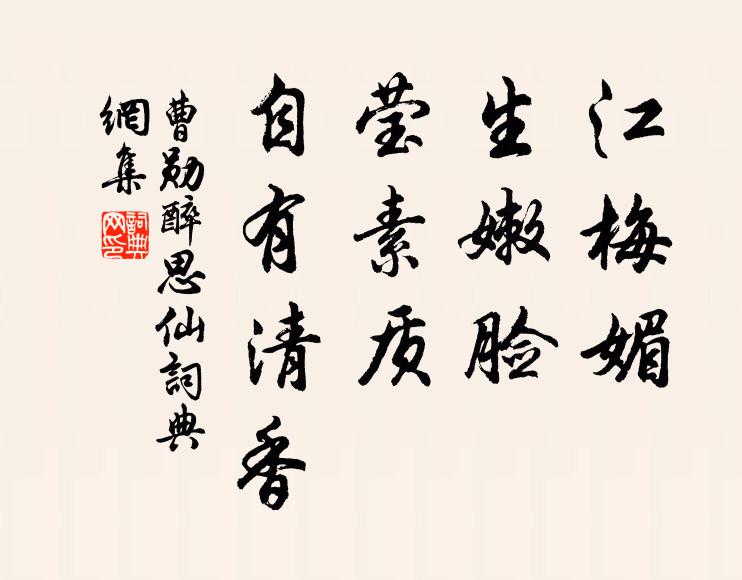 江梅媚
生嫩脸
莹素质
自有清香
曹勋醉思仙詞典
網集
詞典网印